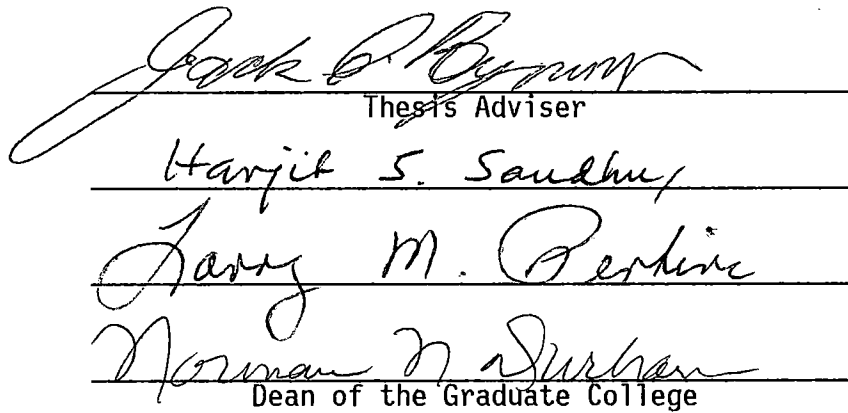 Jack E. Bynum
Thesis Adviser
Harjit S. Sandhu
Larry M. Perkins
Norman N Durham
Dean of the Graduate College